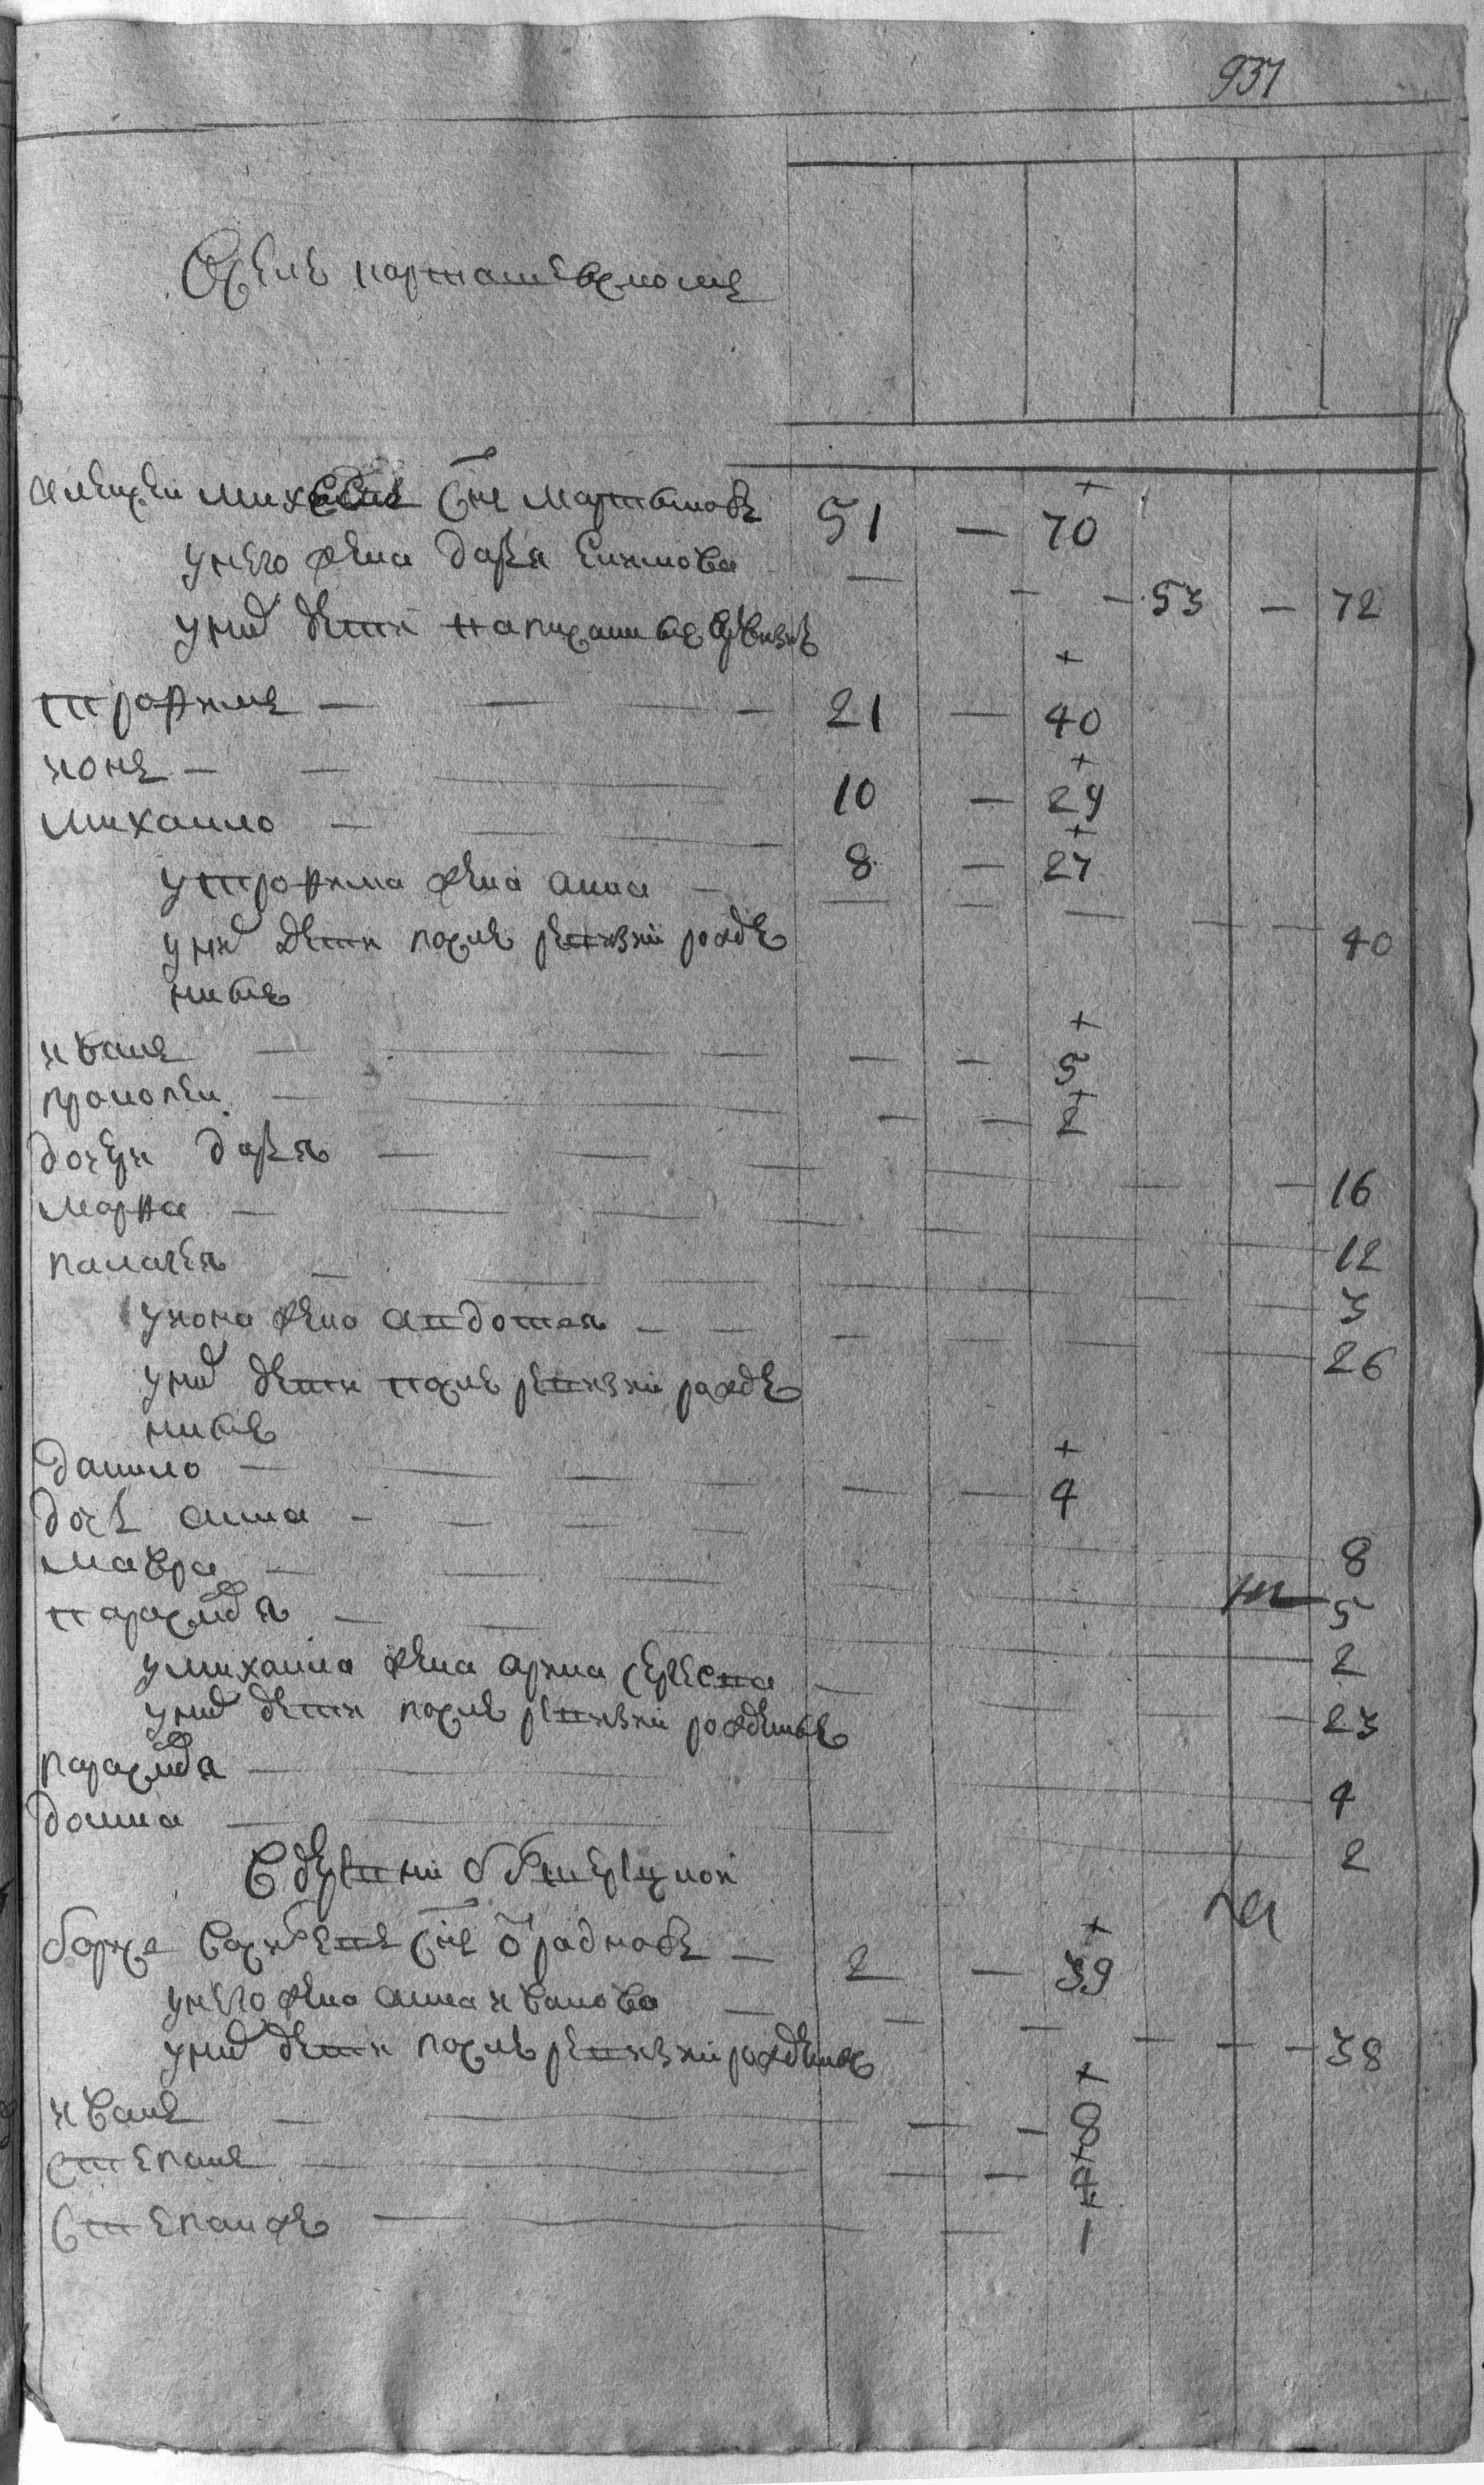 937
Вселе карташевскомъ
Алексеи михеевъ снъ мартыновъ 51 — 70
у него жена дарья Екимова — — — 53 — 72
у них дети написаны въ ревизиѣ
трофимъ — — — 21 — 40
кона — — 10 — 29
михаило — — 8 — 27
у трофима жена анна — — — — — — — 40
у них дети после ревизии рожде
ныѣ
иванъ — — — — — 5
прокопеи — — — — 2
дочери дарья — — — — 16
марфа — — — — 12
палагея — — — — 3
у кона жена авдотья — — — — 26
у них дети после ревизии рожде
ныѣ
данило — — — — — 4
дочь анна — — — — 8
мавра — — — 5
параскидья — — 2
у михаила жена арина сергеева — — 23
у них дети после ревизии рожденые
параскидя — 4
донна — 2
В деревни
борисъ снъ — 2 — 39
у него жена анна иванова — — — — — 38
у них дети после ревизии рожденые
иванъ — — — — 8
степанъ — — — — 4
степанъ же — — — 1